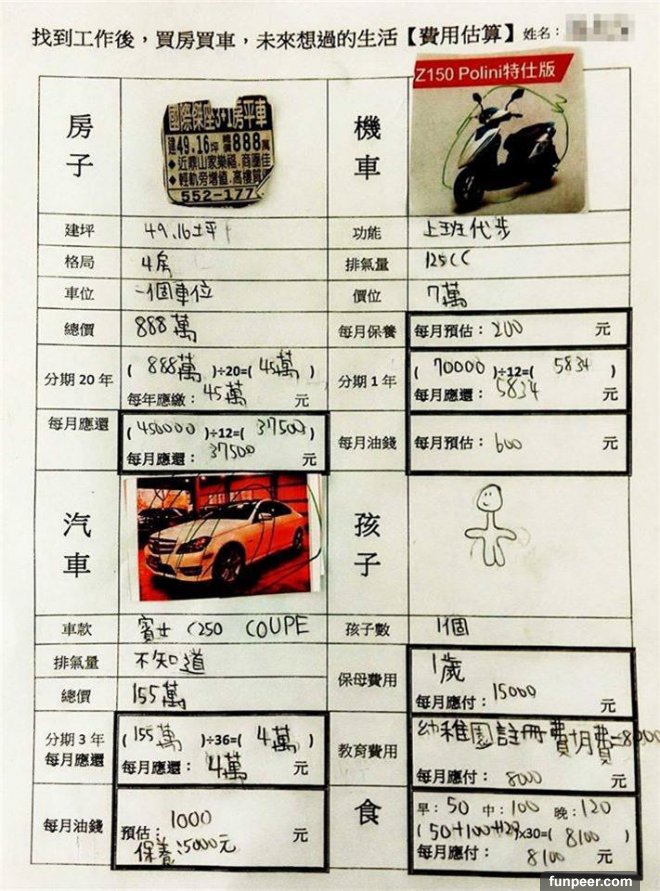 找到工作後，買房買車，未來想過的生活【費用估算】姓名：
房子
國際傑座3+1房平車
建49.16坪 總價888萬
◆近鼎山家樂福.商圈佳
◆輕軌旁增值.高樓質
552-177
機車
Z150 Polini特仕版
建坪 49.16坪
功能 上班代步
格局 4房
排氣量 125CC
車位 一個車位
價位 7萬
總價 888萬
每月保養 每月預估：200 元
分期20年 (888萬)÷20=(45萬)
每年應繳：45萬 元
分期1年 (70000)÷12=(5834)
每月應還：5834 元
每月應還 (450000)÷12=(37500)
每月應還：37500 元
每月油錢 每月預估：600 元
汽車
孩子
車款 賓士 C250 COUPE
孩子數 1個
排氣量 不知道
總價 155萬
保母費用 1歲
每月應付：15000 元
分期3年 (155萬)÷36=(4萬)
每月應還 每月應還：4萬 元
教育費用 幼稚園註冊費+月費=8000
每月應付：8000 元
每月油錢 預估：1000 元
保養：5000元
食 早：50 中：100 晚：120
(50+100+120)x30=(8100)
每月應付：8100 元
funpeer.com